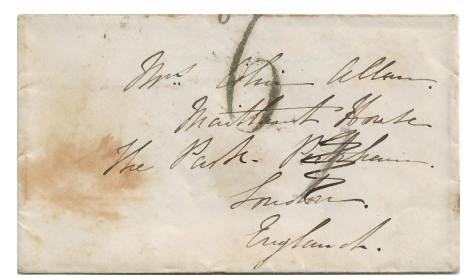 6
Mrs. Colin Allan.
Maitland House
The Park - Peckham.
London.
England.